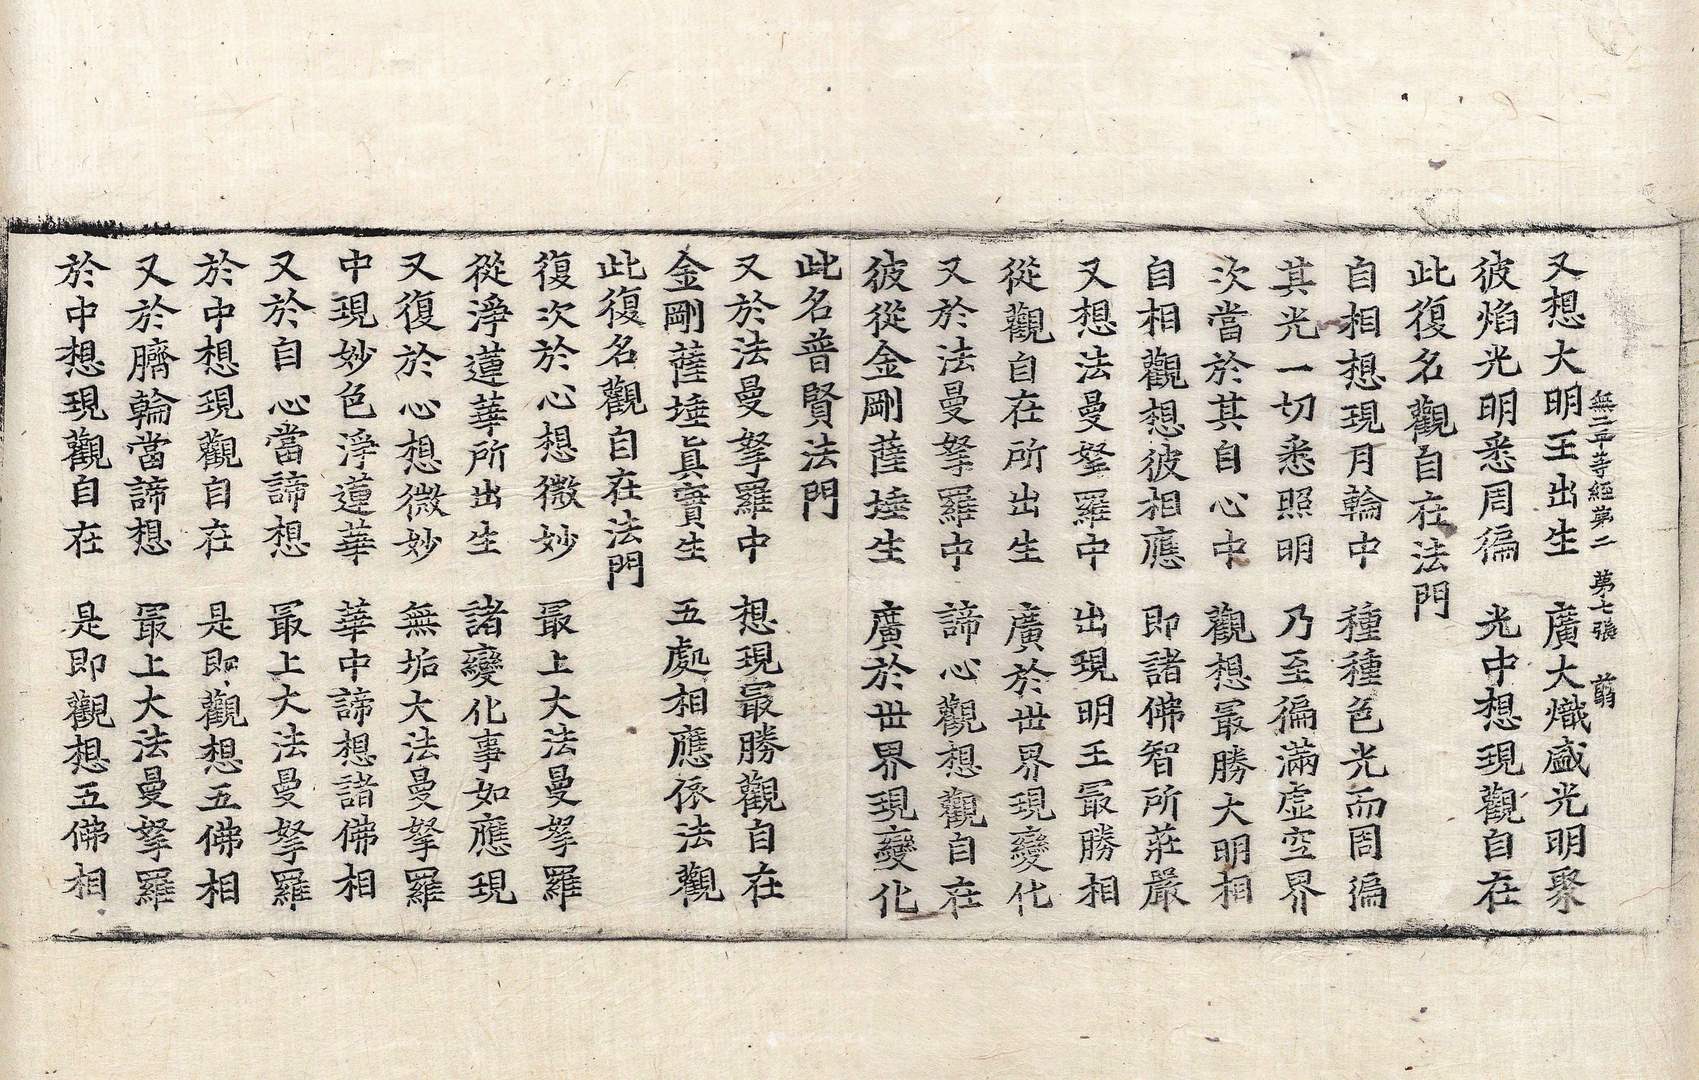 無二平等經第二 第七張 翦
又想大明王出生 廣大熾盛光明聚
彼焰光明悉周徧 光中想現觀自在
此復名觀自在法門
自相想現月輪中 種種色光而周徧
其光一切悉照明 乃至徧滿虛空界
次當於其自心中 觀想最勝大明相
自相觀想彼相應 即諸佛智所莊嚴
又想法曼拏羅中 出現明王最勝相
從觀自在所出生 廣於世界現變化
又於法曼拏羅中 諦心觀想觀自在
彼從金剛薩埵生 廣於世界現變化
此名普賢法門
又於法曼拏羅中 想現最勝觀自在
金剛薩埵真實生 五處相應依法觀
此復名觀自在法門
復次於心想微妙 最上大法曼拏羅
從淨蓮華所出生 諸變化事如應現
又復於心想微妙 無垢大法曼拏羅
中現妙色淨蓮華 華中諦想諸佛相
又於自心當諦想 最上大法曼拏羅
於中想現觀自在 是即觀想五佛相
又於臍輪當諦想 最上大法曼拏羅
於中想現觀自在 是即觀想五佛相